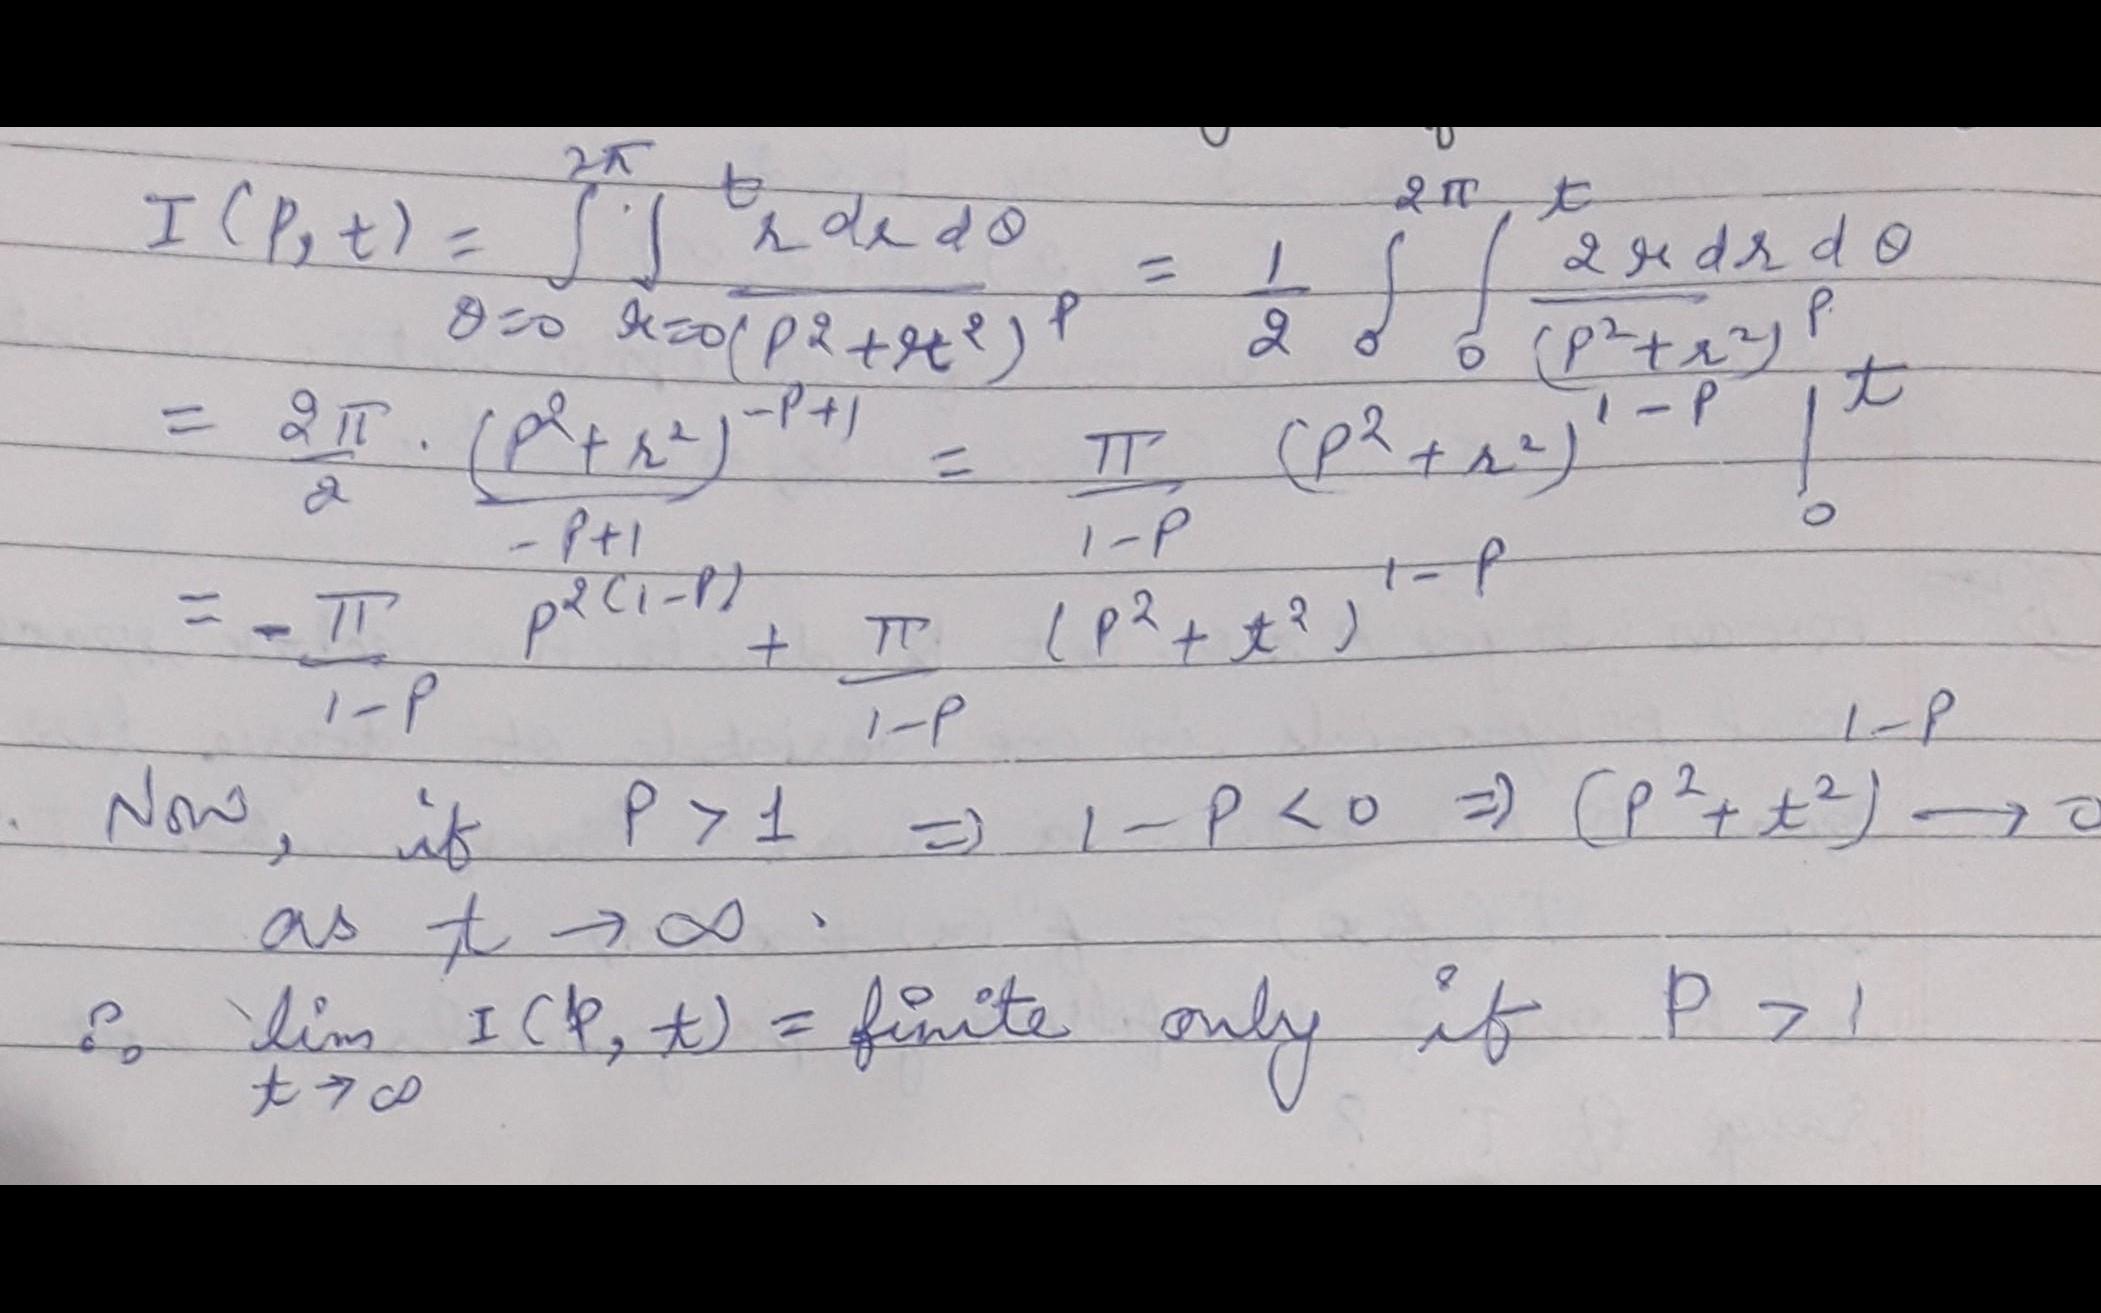 I(P, t) = ∫_{θ=0}^{2π} ∫_{r=0}^{t} r dr dθ / (P² + r²)^P = 1/2 ∫_0^{2π} ∫_0^t 2r dr dθ / (P² + r²)^P
= 2π/2 · (P² + r²)^{-P+1} / (-P+1) = π/(1-P) (P² + r²)^{1-P} |_0^t
= - π/(1-P) P^{2(1-P)} + π/(1-P) (P² + t²)^{1-P}
Now, if P > 1 ⇒ 1-P < 0 ⇒ (P² + t²)^{1-P} → 0
as t → ∞.
∴ lim_{t→∞} I(P, t) = finite only if P > 1